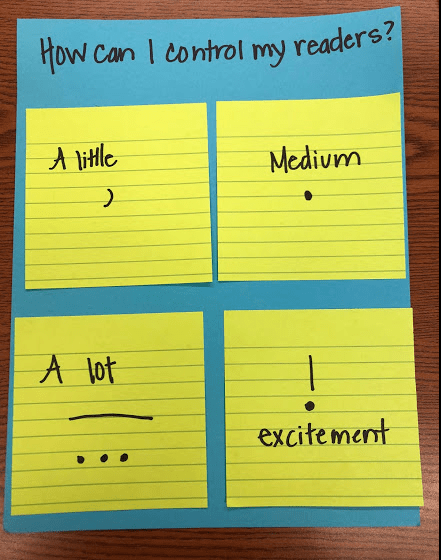 How can I control my readers?
A little
,
Medium
.
A lot
—
...
!
excitement